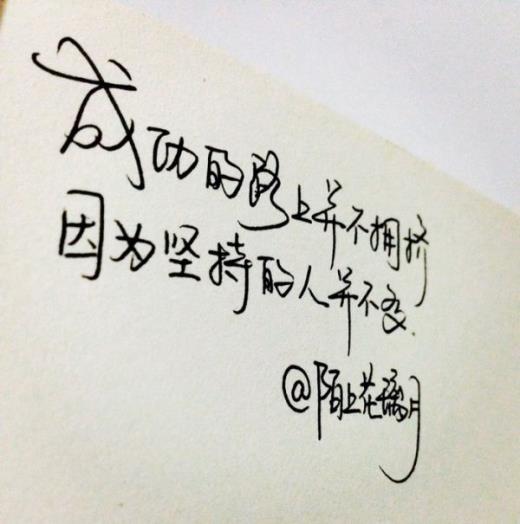 成功的路上并不拥挤
因为坚持的人并不多.
@陌上花璃月